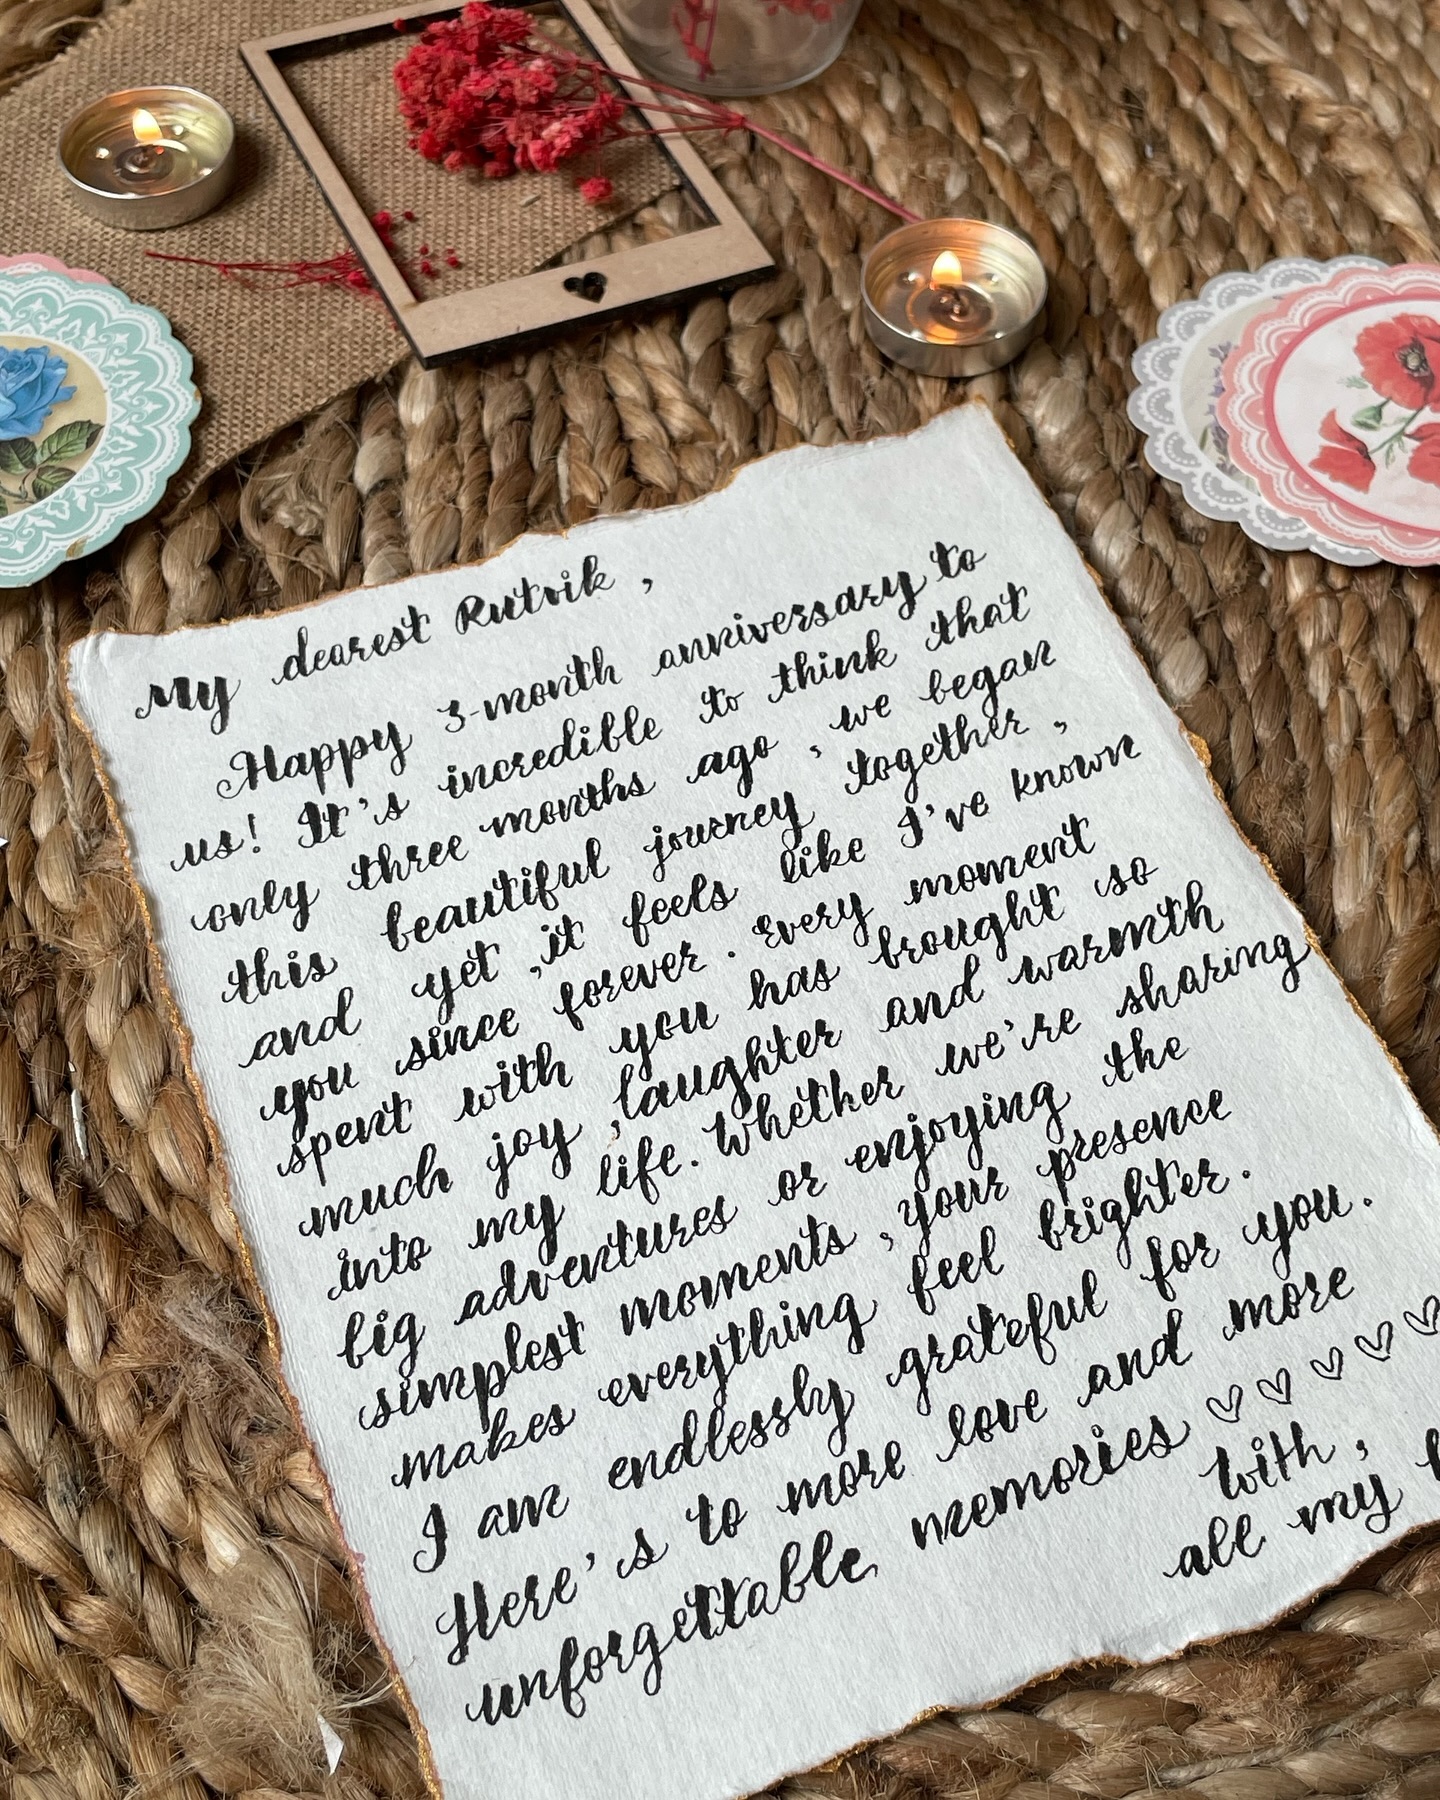 My dearest Rutvik ,
Happy 3-month anniversary to
us! It's incredible to think that
only three months ago , we began
this beautiful journey together ,
and yet ,it feels like I've known
you since forever . Every moment
spent with you has brought so
much joy ,laughter and warmth
into my life. Whether we're sharing
big adventures or enjoying the
simplest moments , your presence
makes everything feel brighter .
I am endlessly grateful for you .
Here's to more love and more
unforgettable memories ♡ ♡ ♡ ♡ ♡
with ,
all my